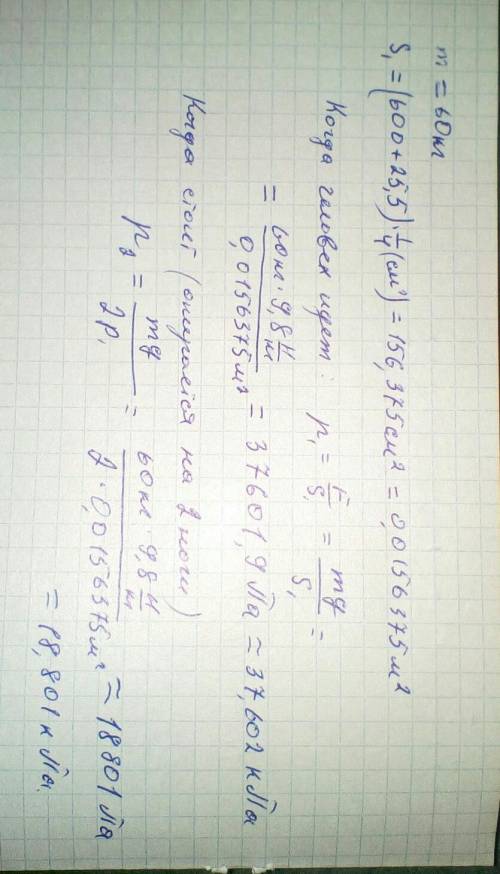 m = 60кг
S₁ = (600+25,5)·1/4 (см²) = 156,375 см² = 0,0156375 м²
Когда человек идет: p₁ = F/S₁ = mg/S₁ =
= 60кг·9,8 Н/кг / 0,0156375м² = 37601,9 Па ≈ 37,602 кПа
Когда стоит (опирается на 2 ноги)
p₂ = mg/2p₁ = 60кг·9,8 Н/кг / 2·0,0156375м² ≈ 18801 Па
= 18,801 кПа.